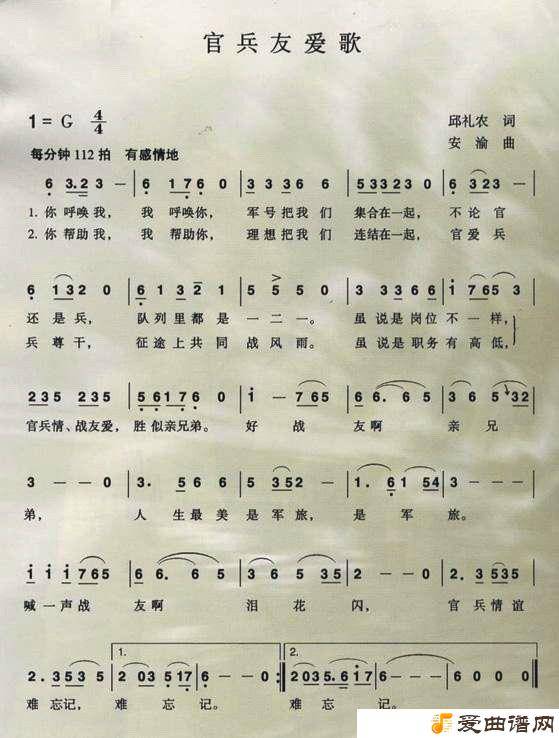 官兵友爱歌
1=G 4/4
邱礼农 词
安渝 曲
每分钟112拍 有感情地
6 3.2 3 — | 6 1 7 6 0 | 3 3 3 6 6 | 5 3 3 2 3 0 | 6 3 2 3 — |
1.你呼唤我, 我呼唤你, 军号把我们 集合在一起, 不论官
2.你帮助我, 我帮助你, 理想把我们 连结在一起, 官爱兵
6 1 3 2 0 | 6 1 3 2 1 | 5 5 5 0 | 3 3 3 6 6 | 1 7 6 5 3 |
还是兵, 队列里都是一二一。 虽说是岗位不一样,
兵尊干, 征途上共同战风雨。 虽说是职务有高低,
2 3 5 2 3 5 | 5 6 1 7 6 0 | i — 7 6 5 | 6 6. 6 5 | 3 6 5 3 2 |
官兵情、战友爱, 胜似亲兄弟。 好战友啊 亲兄
3 — — 0 | 3. 5 6 6 | 5 3 5 — | 1. 6 1 5 4 | 3 — — — |
弟, 人生最美是军旅, 是军旅。
i i i 7 6 5 | 6 6. 6 5 | 3 5 1 3 | 2 — — 0 | i i 7 6 5 3 |
喊一声战友啊 泪花闪, 官兵情谊
2. 3 5 3 5 | 1. 2 0 3 5 1 7 | 6 — — 0 :| 2. 2 0 3 5. 6 1 7 | 6 — — — | 6 0 0 0 ‖
难忘记, 难忘记。 难忘记。
爱曲谱网